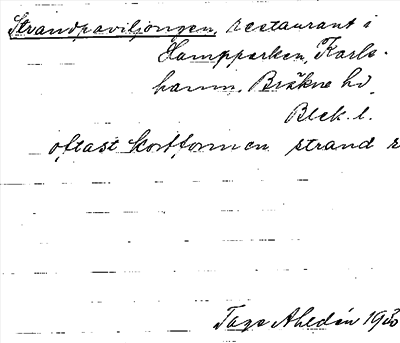 Strandpaviljongen, restaurant i
Hamnparken, Karls-
hamn. Bräkne hd.
Blek. l.
oftast kortformen strand
Tage Ahldén 193